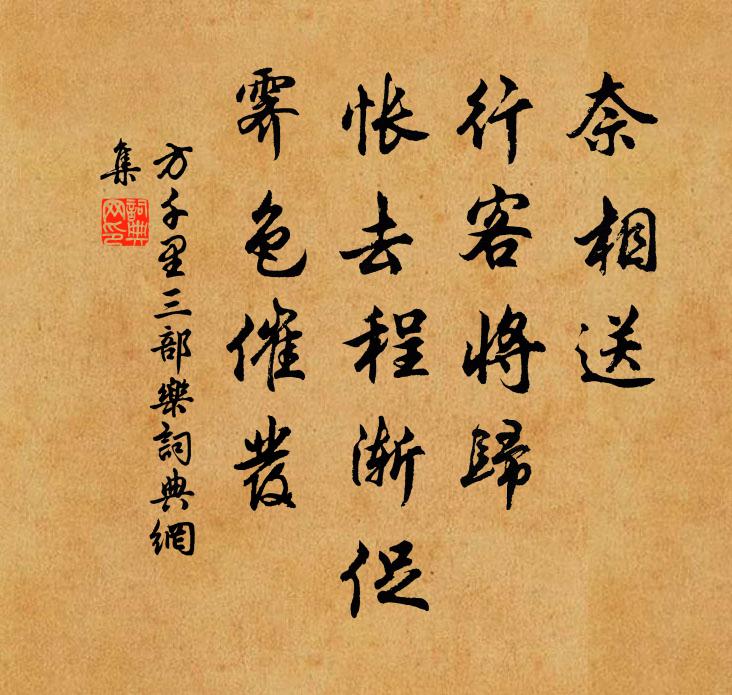 奈相送
行客將歸
悵去程漸促
霽色催發
方千里三部樂詞典網
集
詞典
网印